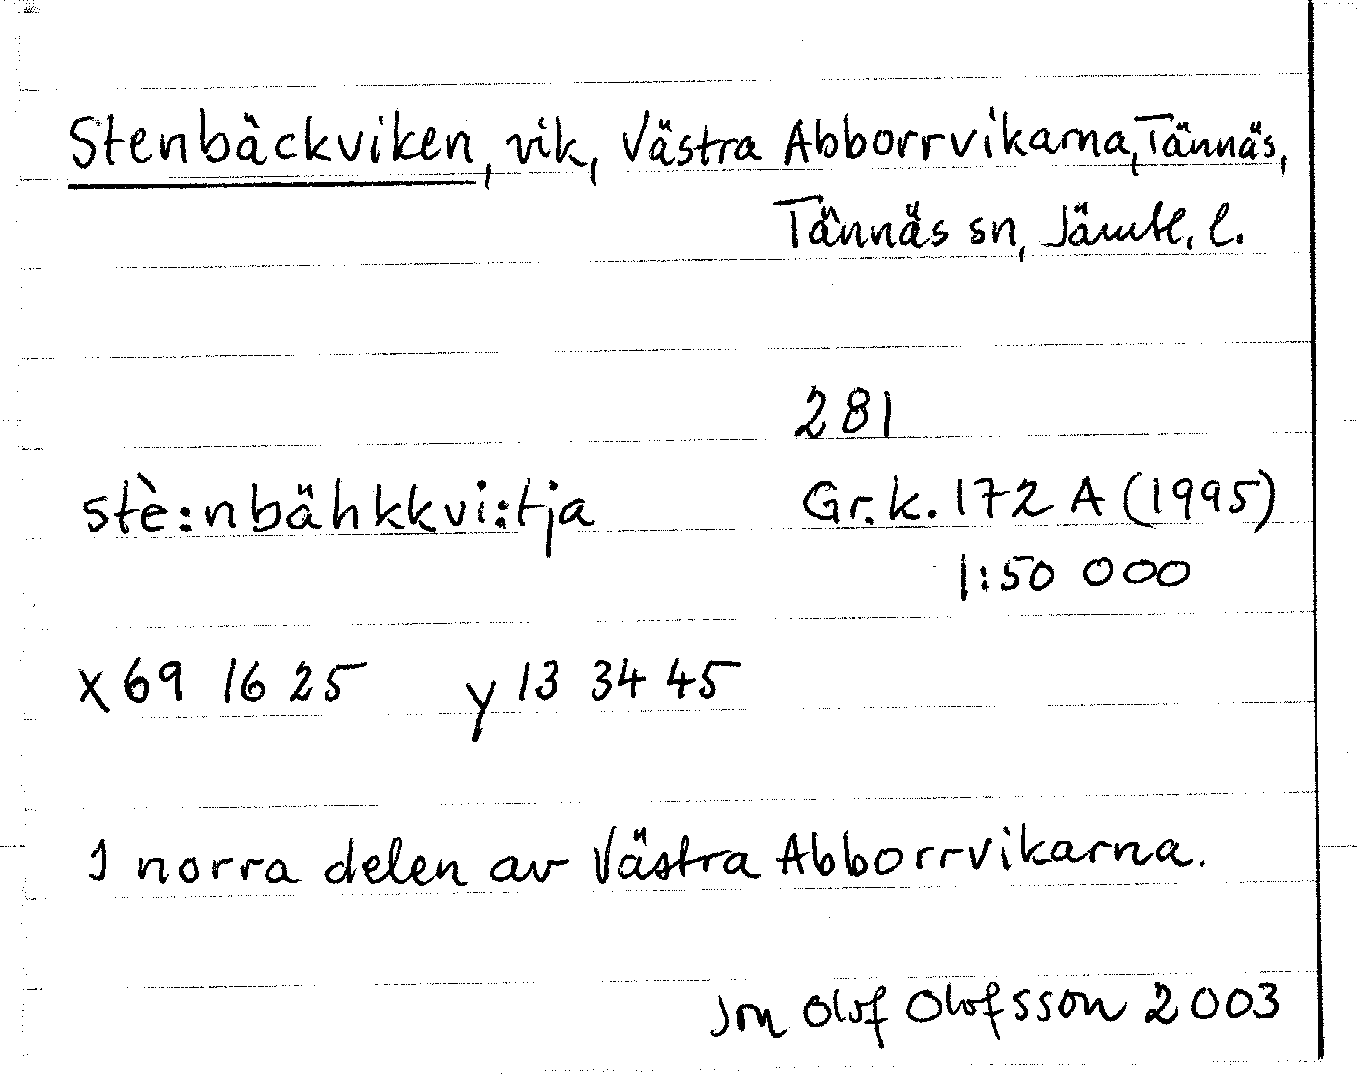 Stenbäckviken, vik, Västra Abborrvikarna, Tännäs,
Tännäs sn, Jämtl. l.
281
stè:nbähkkvi:tja Gr.k. 172 A (1995)
1:50 000
x 69 16 25 y 13 34 45
I norra delen av Västra Abborrvikarna.
Jon Olof Olofsson 2003